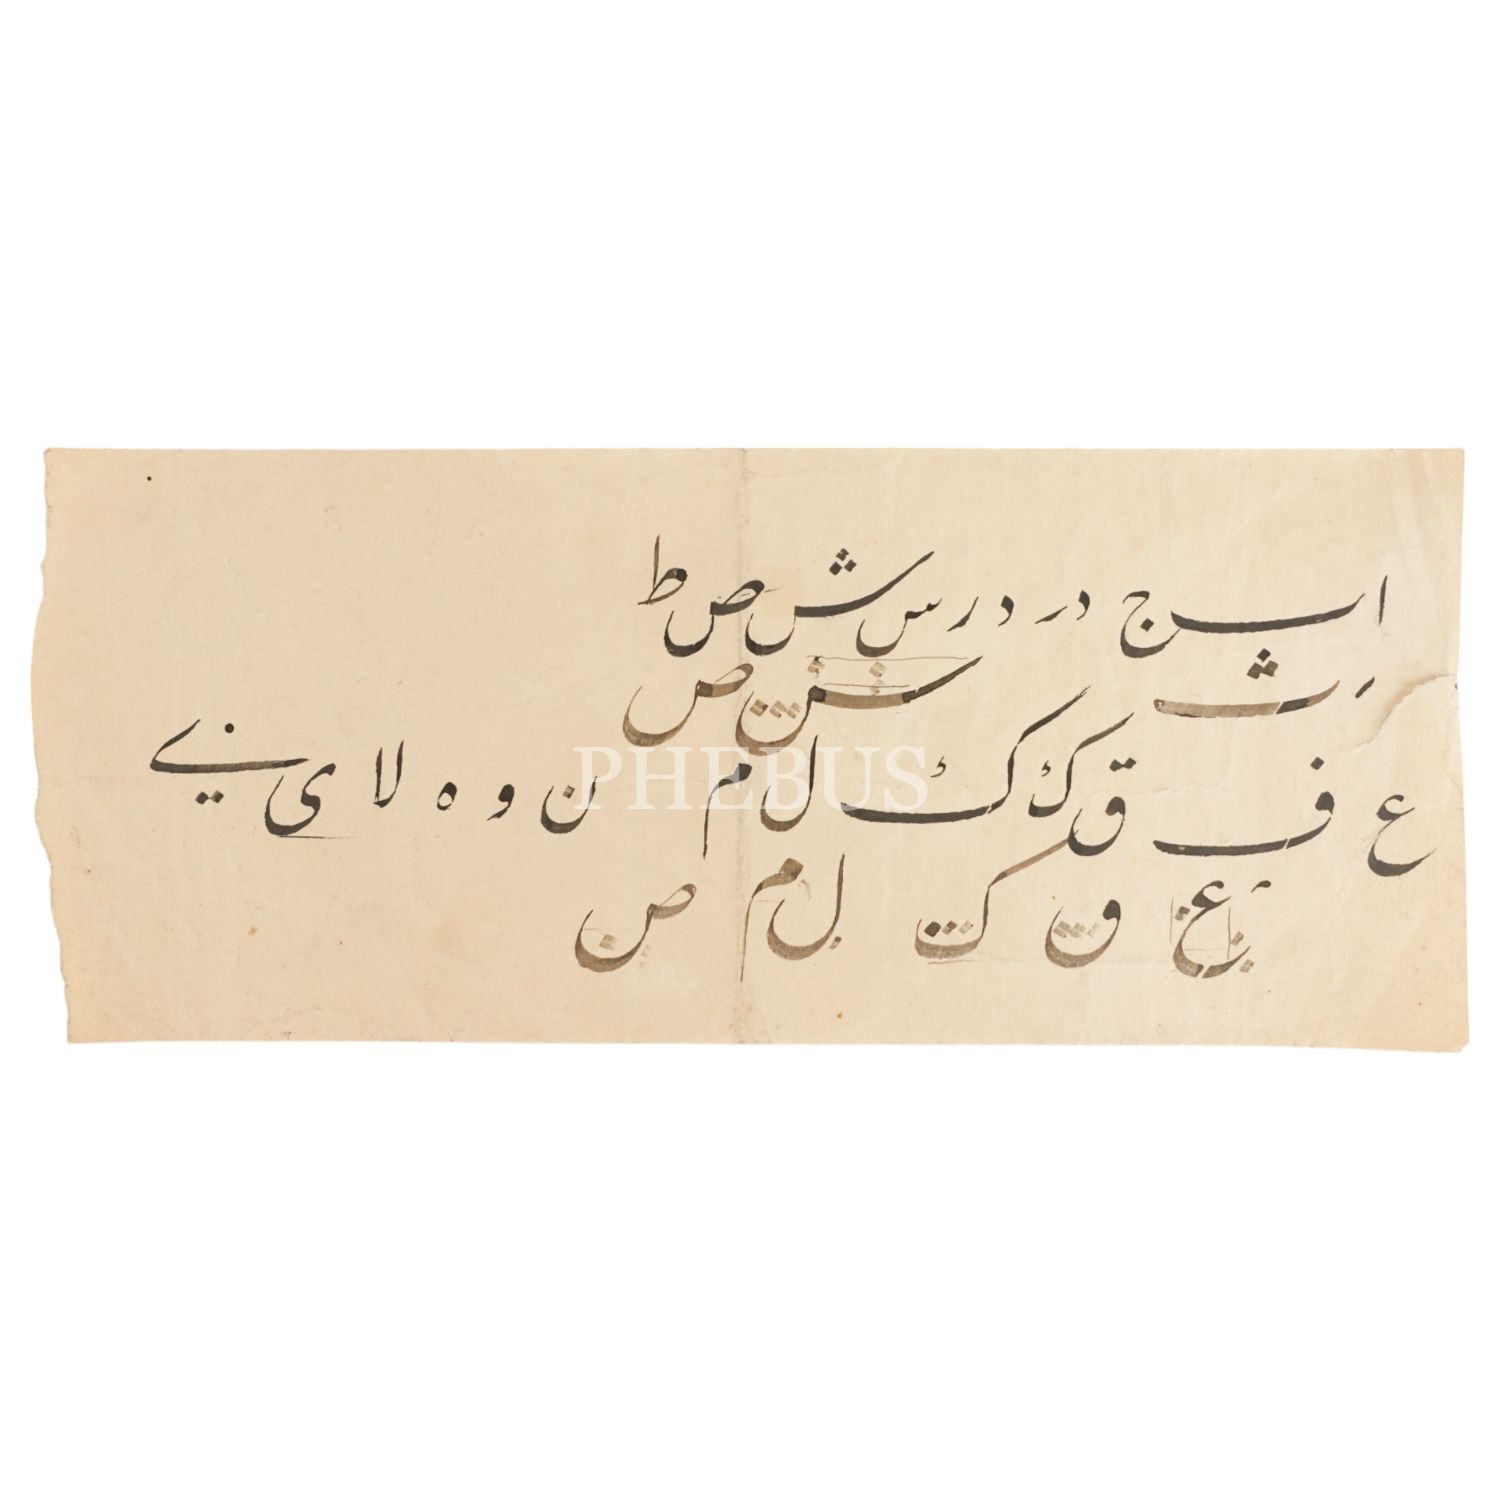 ا ب ج د ر د ر س ش ص ط
ث ش ص
ع ف ف ق ک ک ل م ن و ه لا ی ے
غ ق ک ل م ص
PHEBUS